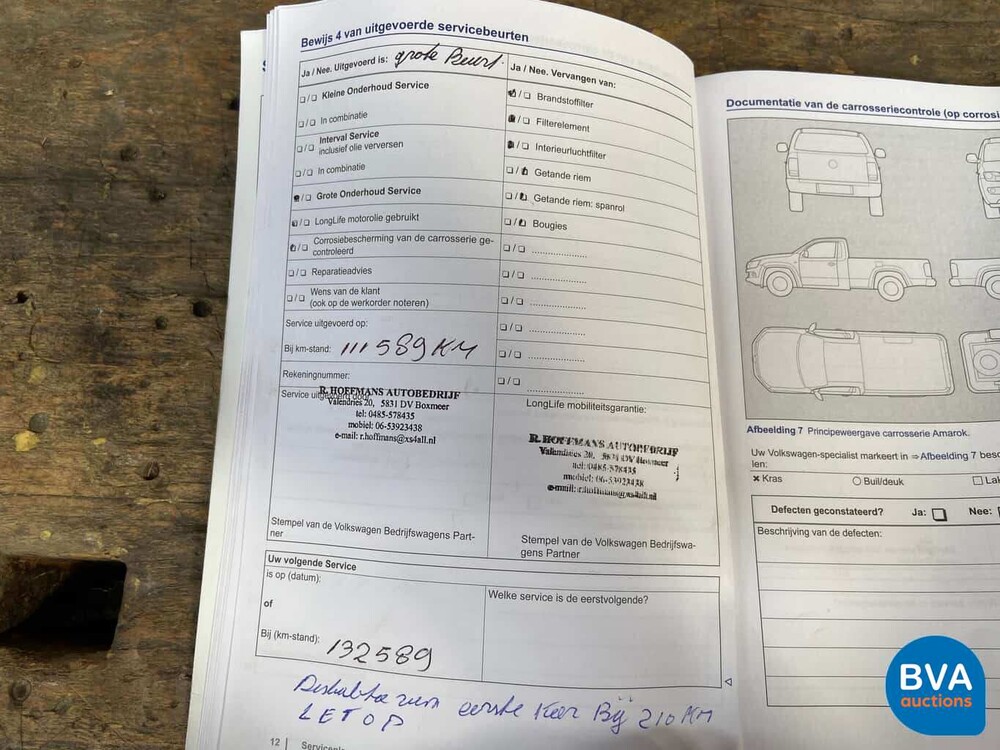 Bewijs 4 van uitgevoerde servicebeurten
Ja / Nee. Uitgevoerd is: grote Beurt.
Kleine Onderhoud Service
In combinatie
Interval Service
inclusief olie verversen
In combinatie
Grote Onderhoud Service
LongLife motorolie gebruikt
Corrosiebescherming van de carrosserie ge-
controleerd
Reparatieadvies
Wens van de klant
(ook op de werkorder noteren)
Service uitgevoerd op:
Bij km-stand: 111589 KM
Rekeningnummer:
Service uitgevoerd door:
R. HOFFMANS AUTOBEDRIJF
Valendries 20, 5831 DV Boxmeer
tel: 0485-578435
mobiel: 06-53923438
e-mail: r.hoffmans@xs4all.nl
Stempel van de Volkswagen Bedrijfswagens Part-
ner
Ja / Nee. Vervangen van:
Brandstoffilter
Filterelement
Interieurluchtfilter
Getande riem
Getande riem: spanrol
Bougies
LongLife mobiliteitsgarantie:
R. HOFFMANS AUTOBEDRIJF
Valendries 20, 5831 DV Boxmeer
tel: 0485-578435
mobiel: 06-53923438
e-mail: r.hoffmans@xs4all.nl
Stempel van de Volkswagen Bedrijfswa-
gens Partner
Uw volgende Service
is op (datum):
of
Bij (km-stand): 132589
Welke service is de eerstvolgende?
eerste Keer Bij 210 KM
LET OP
12
Documentatie van de carrosseriecontrole (op corrosi
Afbeelding 7 Principeweergave carrosserie Amarok.
Uw Volkswagen-specialist markeert in ⇒Afbeelding 7 besc
len:
× Kras
Buil/deuk
Lak
Defecten geconstateerd? Ja: Nee:
Beschrijving van de defecten:
BVA
auctions